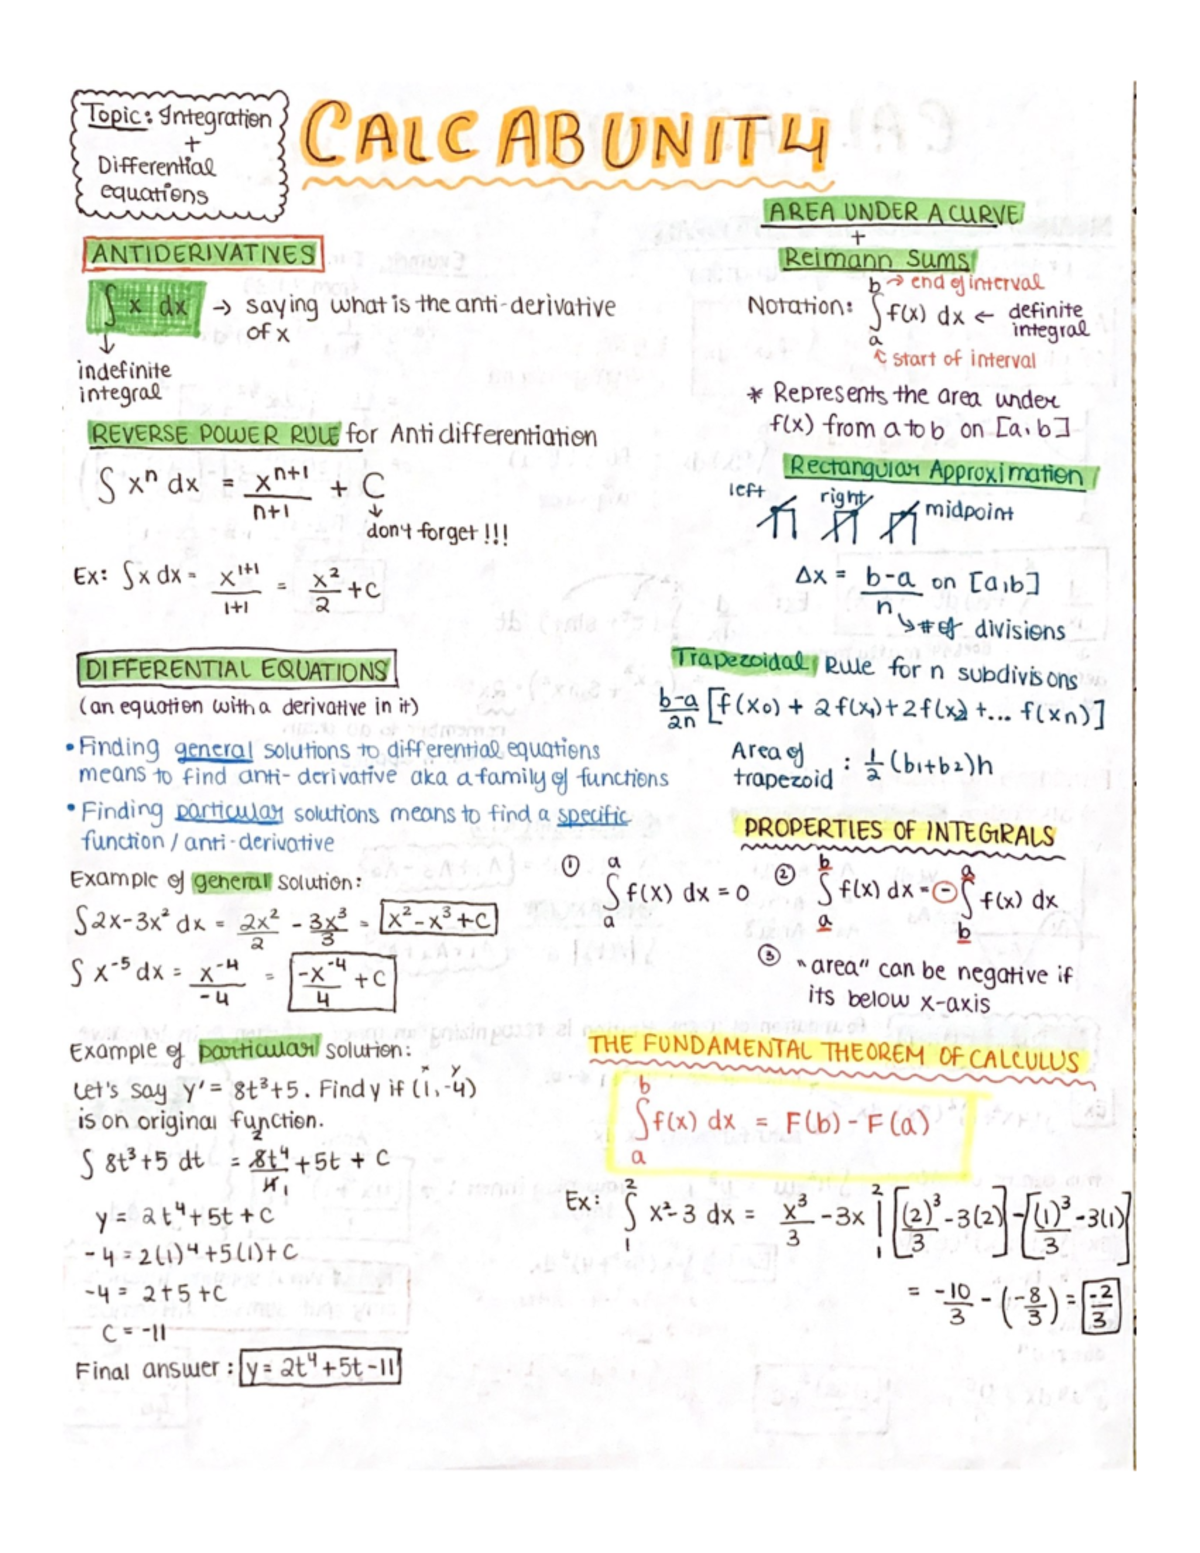 Topic: Integration
+
Differential
equations
CALC AB UNIT 4
ANTIDERIVATIVES
∫ x dx → saying what is the anti-derivative
of x
↓
indefinite
integral
REVERSE POWER RULE for Antidifferentiation
∫ xⁿ dx = xⁿ⁺¹/n+1 + C
↓
don't forget !!!
Ex: ∫ x dx = x¹⁺¹/1+1 = x²/2 + C
DIFFERENTIAL EQUATIONS
(an equation with a derivative in it)
• Finding general solutions to differential equations
means to find anti-derivative aka a family of functions
• Finding particular solutions means to find a specific
function / anti-derivative
Example of general solution:
∫ 2x-3x² dx = 2x²/2 - 3x³/3 = x²-x³+C
∫ x⁻⁵ dx = x⁻⁴/-4 = -x⁻⁴/4 + C
Example of particular solution:
x y
Let's say y' = 8t³+5. Find y if (1,-4)
is on original function.
∫ 8t³+5 dt = 8t⁴/4 + 5t + C
2
1
y = 2t⁴+5t+C
-4 = 2(1)⁴+5(1)+C
-4 = 2+5+C
C = -11
Final answer: y = 2t⁴+5t-11
AREA UNDER A CURVE
+
Reimann Sums
b → end of interval
Notation: ∫ f(x) dx ← definite
integral
a
↖ start of interval
* Represents the area under
f(x) from a to b on [a,b]
Rectangular Approximation
left right midpoint
Δx = b-a/n on [a,b]
↳ # of divisions
Trapezoidal Rule for n subdivisons
b-a/2n [f(x₀) + 2f(x₁)+2f(x₂)+... f(xn)]
Area of
trapezoid : 1/2 (b₁+b₂)h
PROPERTIES OF INTEGRALS
① a∫a f(x) dx = 0
② b∫a f(x) dx = - a∫b f(x) dx
③ "area" can be negative if
its below x-axis
THE FUNDAMENTAL THEOREM OF CALCULUS
b
∫ f(x) dx = F(b) - F(a)
a
Ex: 2∫1 x²-3 dx = x³/3 - 3x |2 1 [(2)³/3 - 3(2)] - [(1)³/3 - 3(1)]
= -10/3 - (-8/3) = -2/3